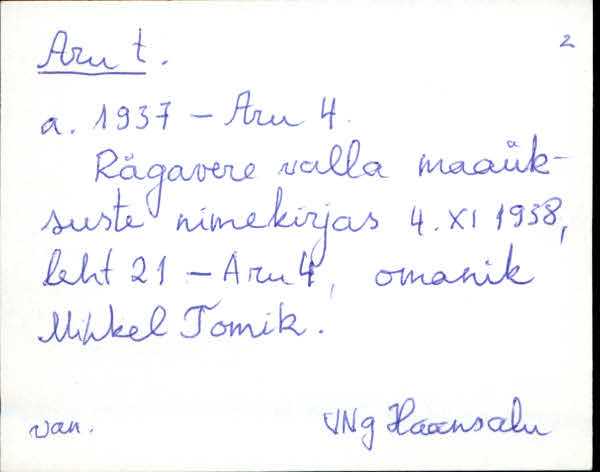 Aru t. 2
a. 1937 – Aru 4.
Rägavere valla maaük-
suste nimekirjas 4. XI 1938,
leht 21 – Aru 4, omanik
Mihkel Tomik.
van. VNg Haansalu